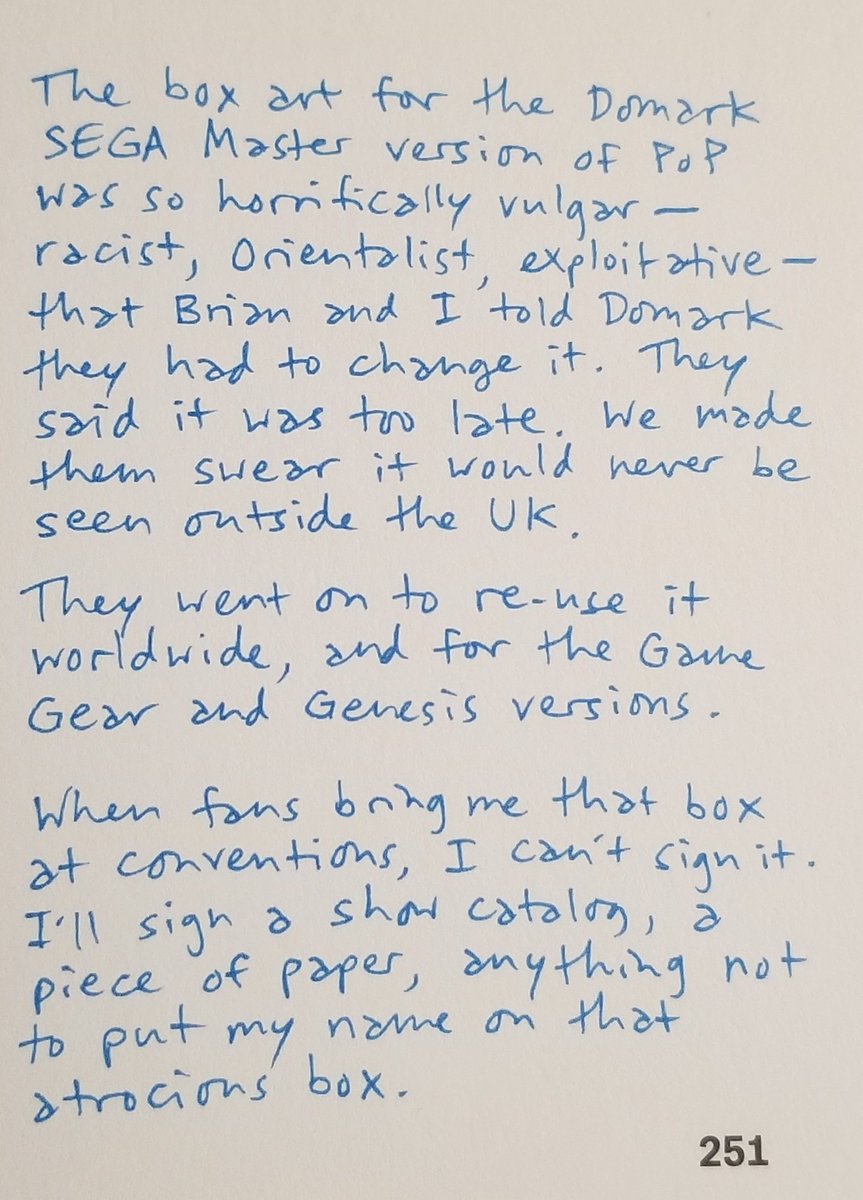 The box art for the Domark
SEGA Master version of PoP
was so horrifically vulgar —
racist, Orientalist, exploitative —
that Brian and I told Domark
they had to change it. They
said it was too late. We made
them swear it would never be
seen outside the UK.
They went on to re-use it
worldwide, and for the Game
Gear and Genesis versions.
When fans bring me that box
at conventions, I can't sign it.
I'll sign a show catalog, a
piece of paper, anything not
to put my name on that
atrocious box.
251